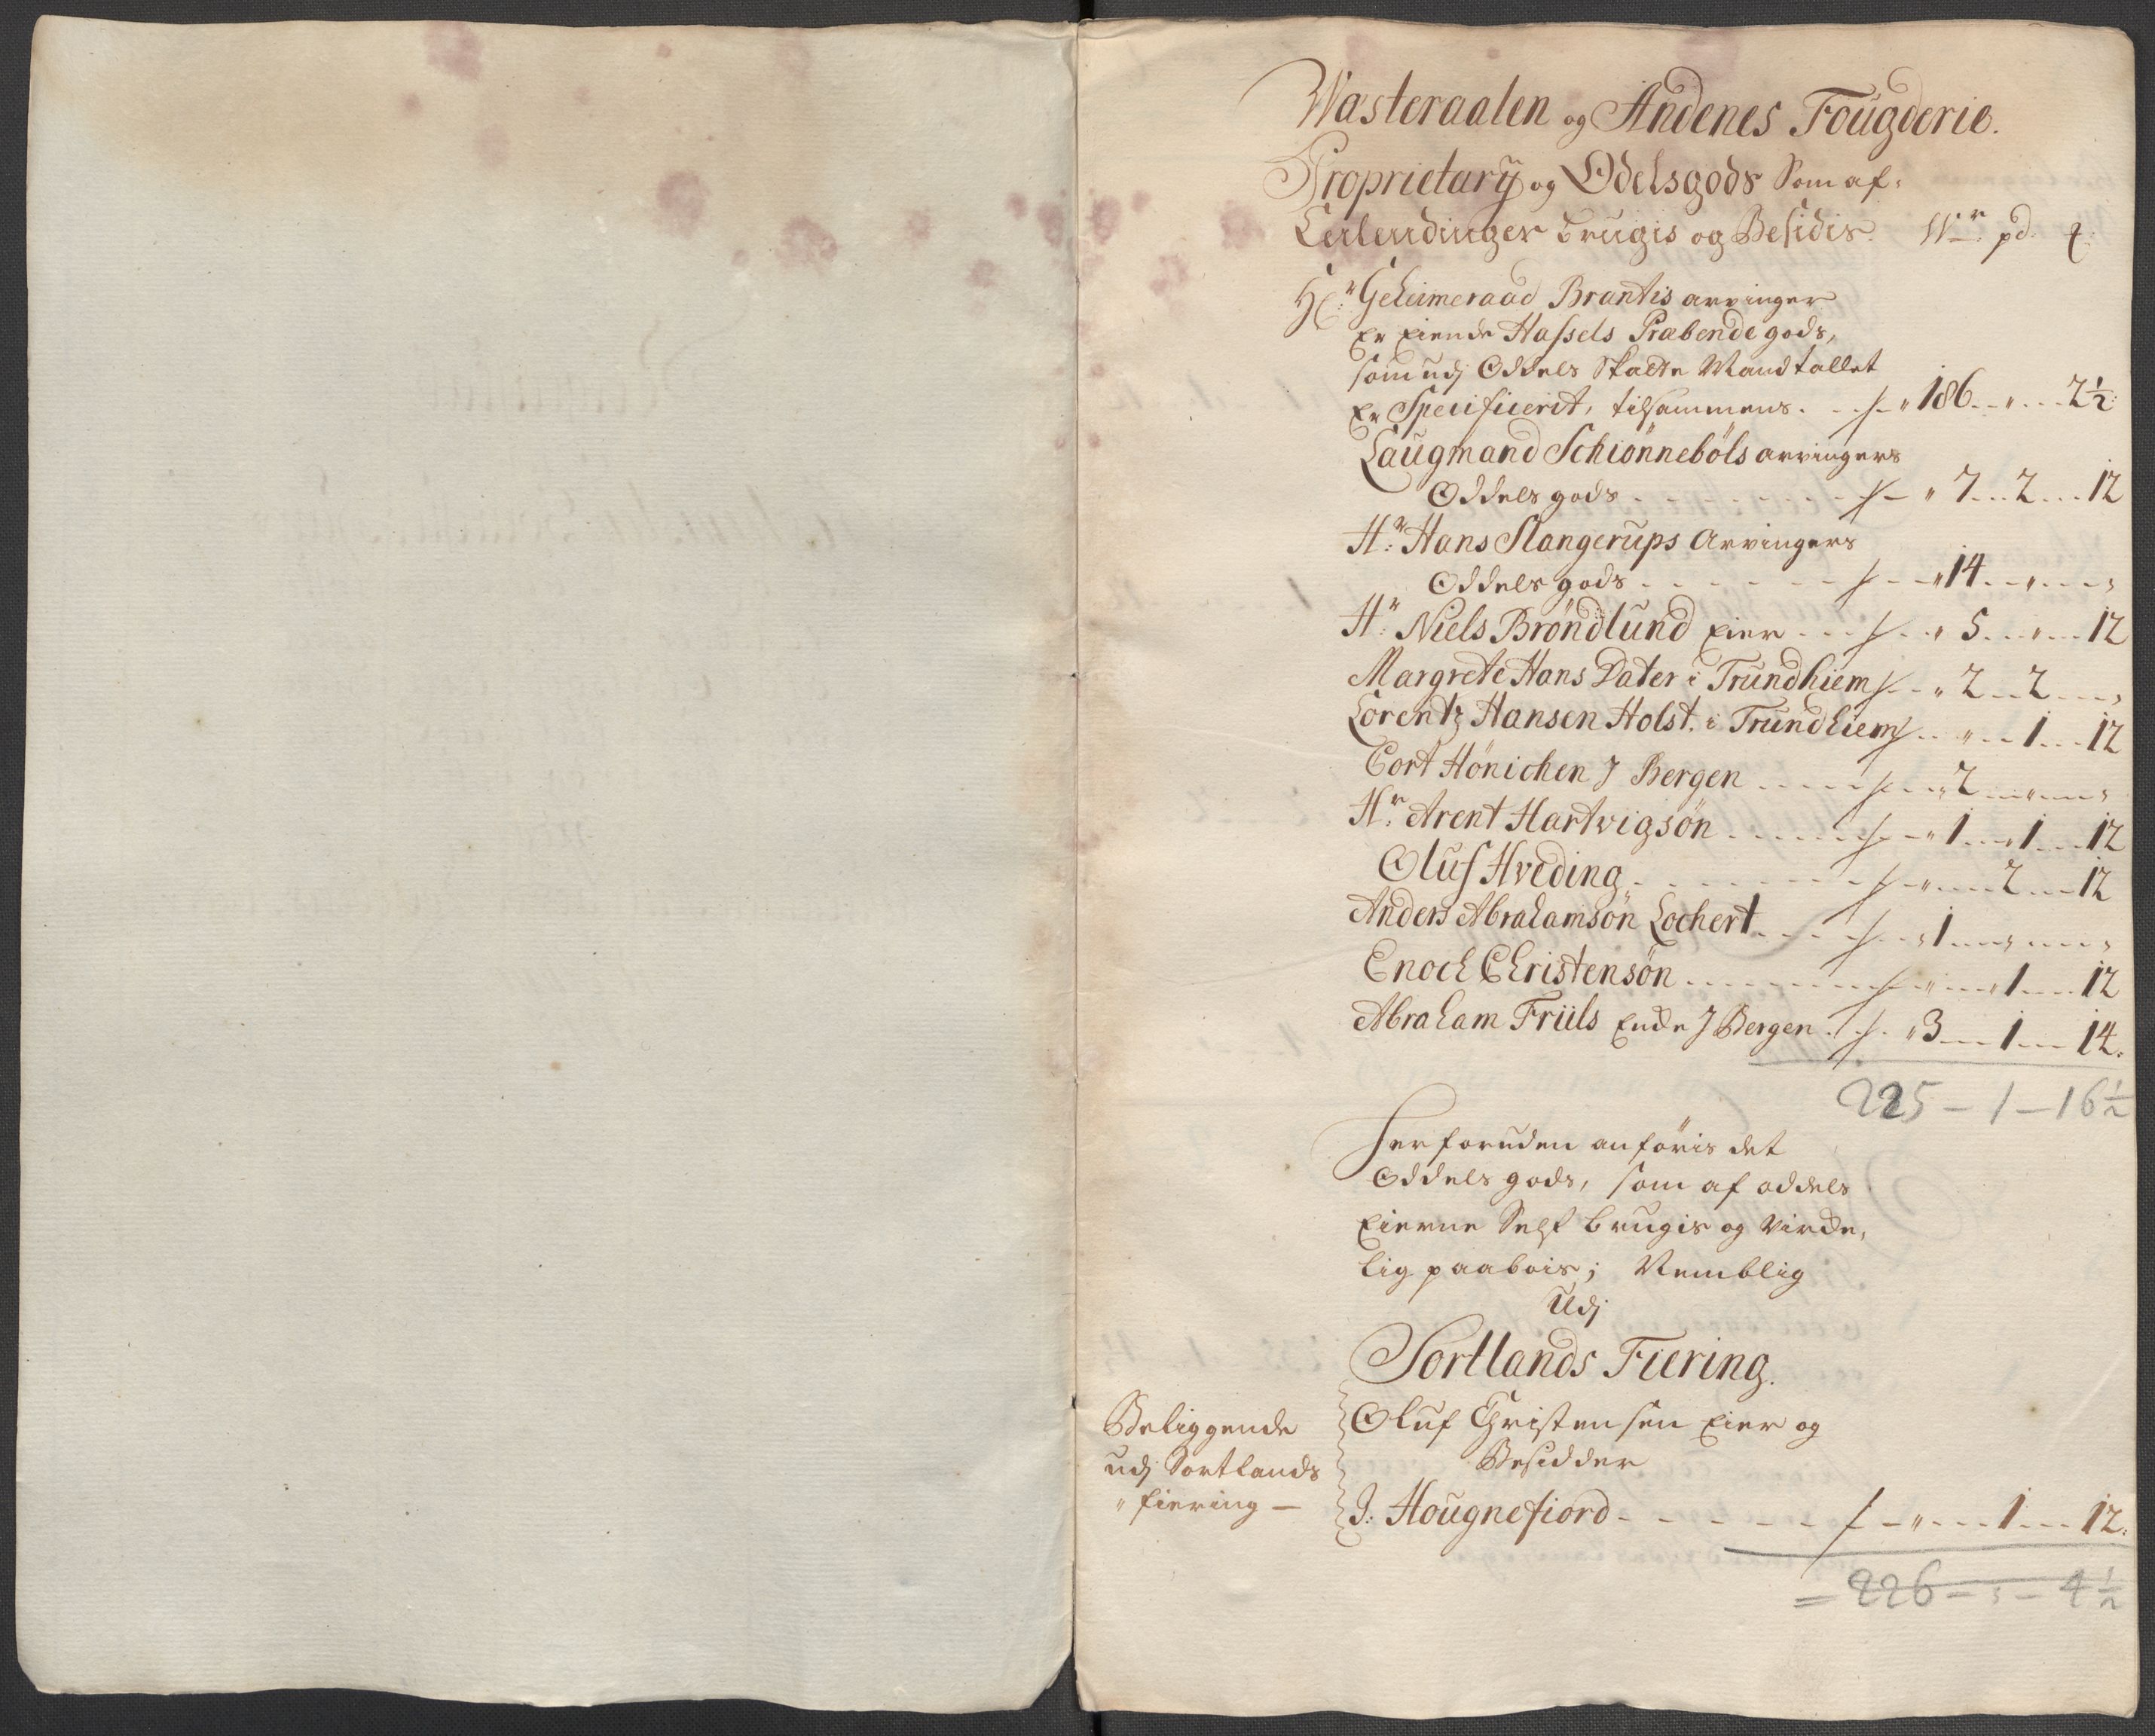 Wasteraalen og Andenes Fougderie.
Proprietarÿ og Odelsgods Som af
Leilendinger brugis og Besidis. W: pd.
Hr: Geheimeraad Brantis arvinger
Er Eiende Hassels Præbende gods,
som udj Oddels Skatte Mandtallet
Er Specificerit, tilsammens. " 186 " 2½
Laugmand Schiönneböls arvingers
Oddels gods " 7 2 12
Hr: Hans Slangerups Arvingers
Oddels gods " 14 " "
Hr: Niels Bröndlund Eier " 5 " 12
Margrete Hans Dater i Trundhiem " 2 2 "
Lorentz Hansen Holst. i Trundhiem " 1 12
Cort Hönichen J Bergen " 2 " "
Hr: Arent Hartvigsön " 1 1 12
Oluf Hveding " 2 12
Anders Abrahamsön Lochert " 1 " "
Enoch Christensön " 1 12
Abraham Friis Encke J Bergen " 3 1 14.
225 - 1 - 16½
Herforuden anföris det
Oddels gods, som af oddels
Eierne Self brugis og Virke,
lig paabois; Nemblig
Udj
Sortlands Fiering.
Beliggende
udj Sortlands
" fiering —
Oluf Christensen Eier og
Besidder
J: Hougnefiord " 1 12.
= 226 - " - 4½